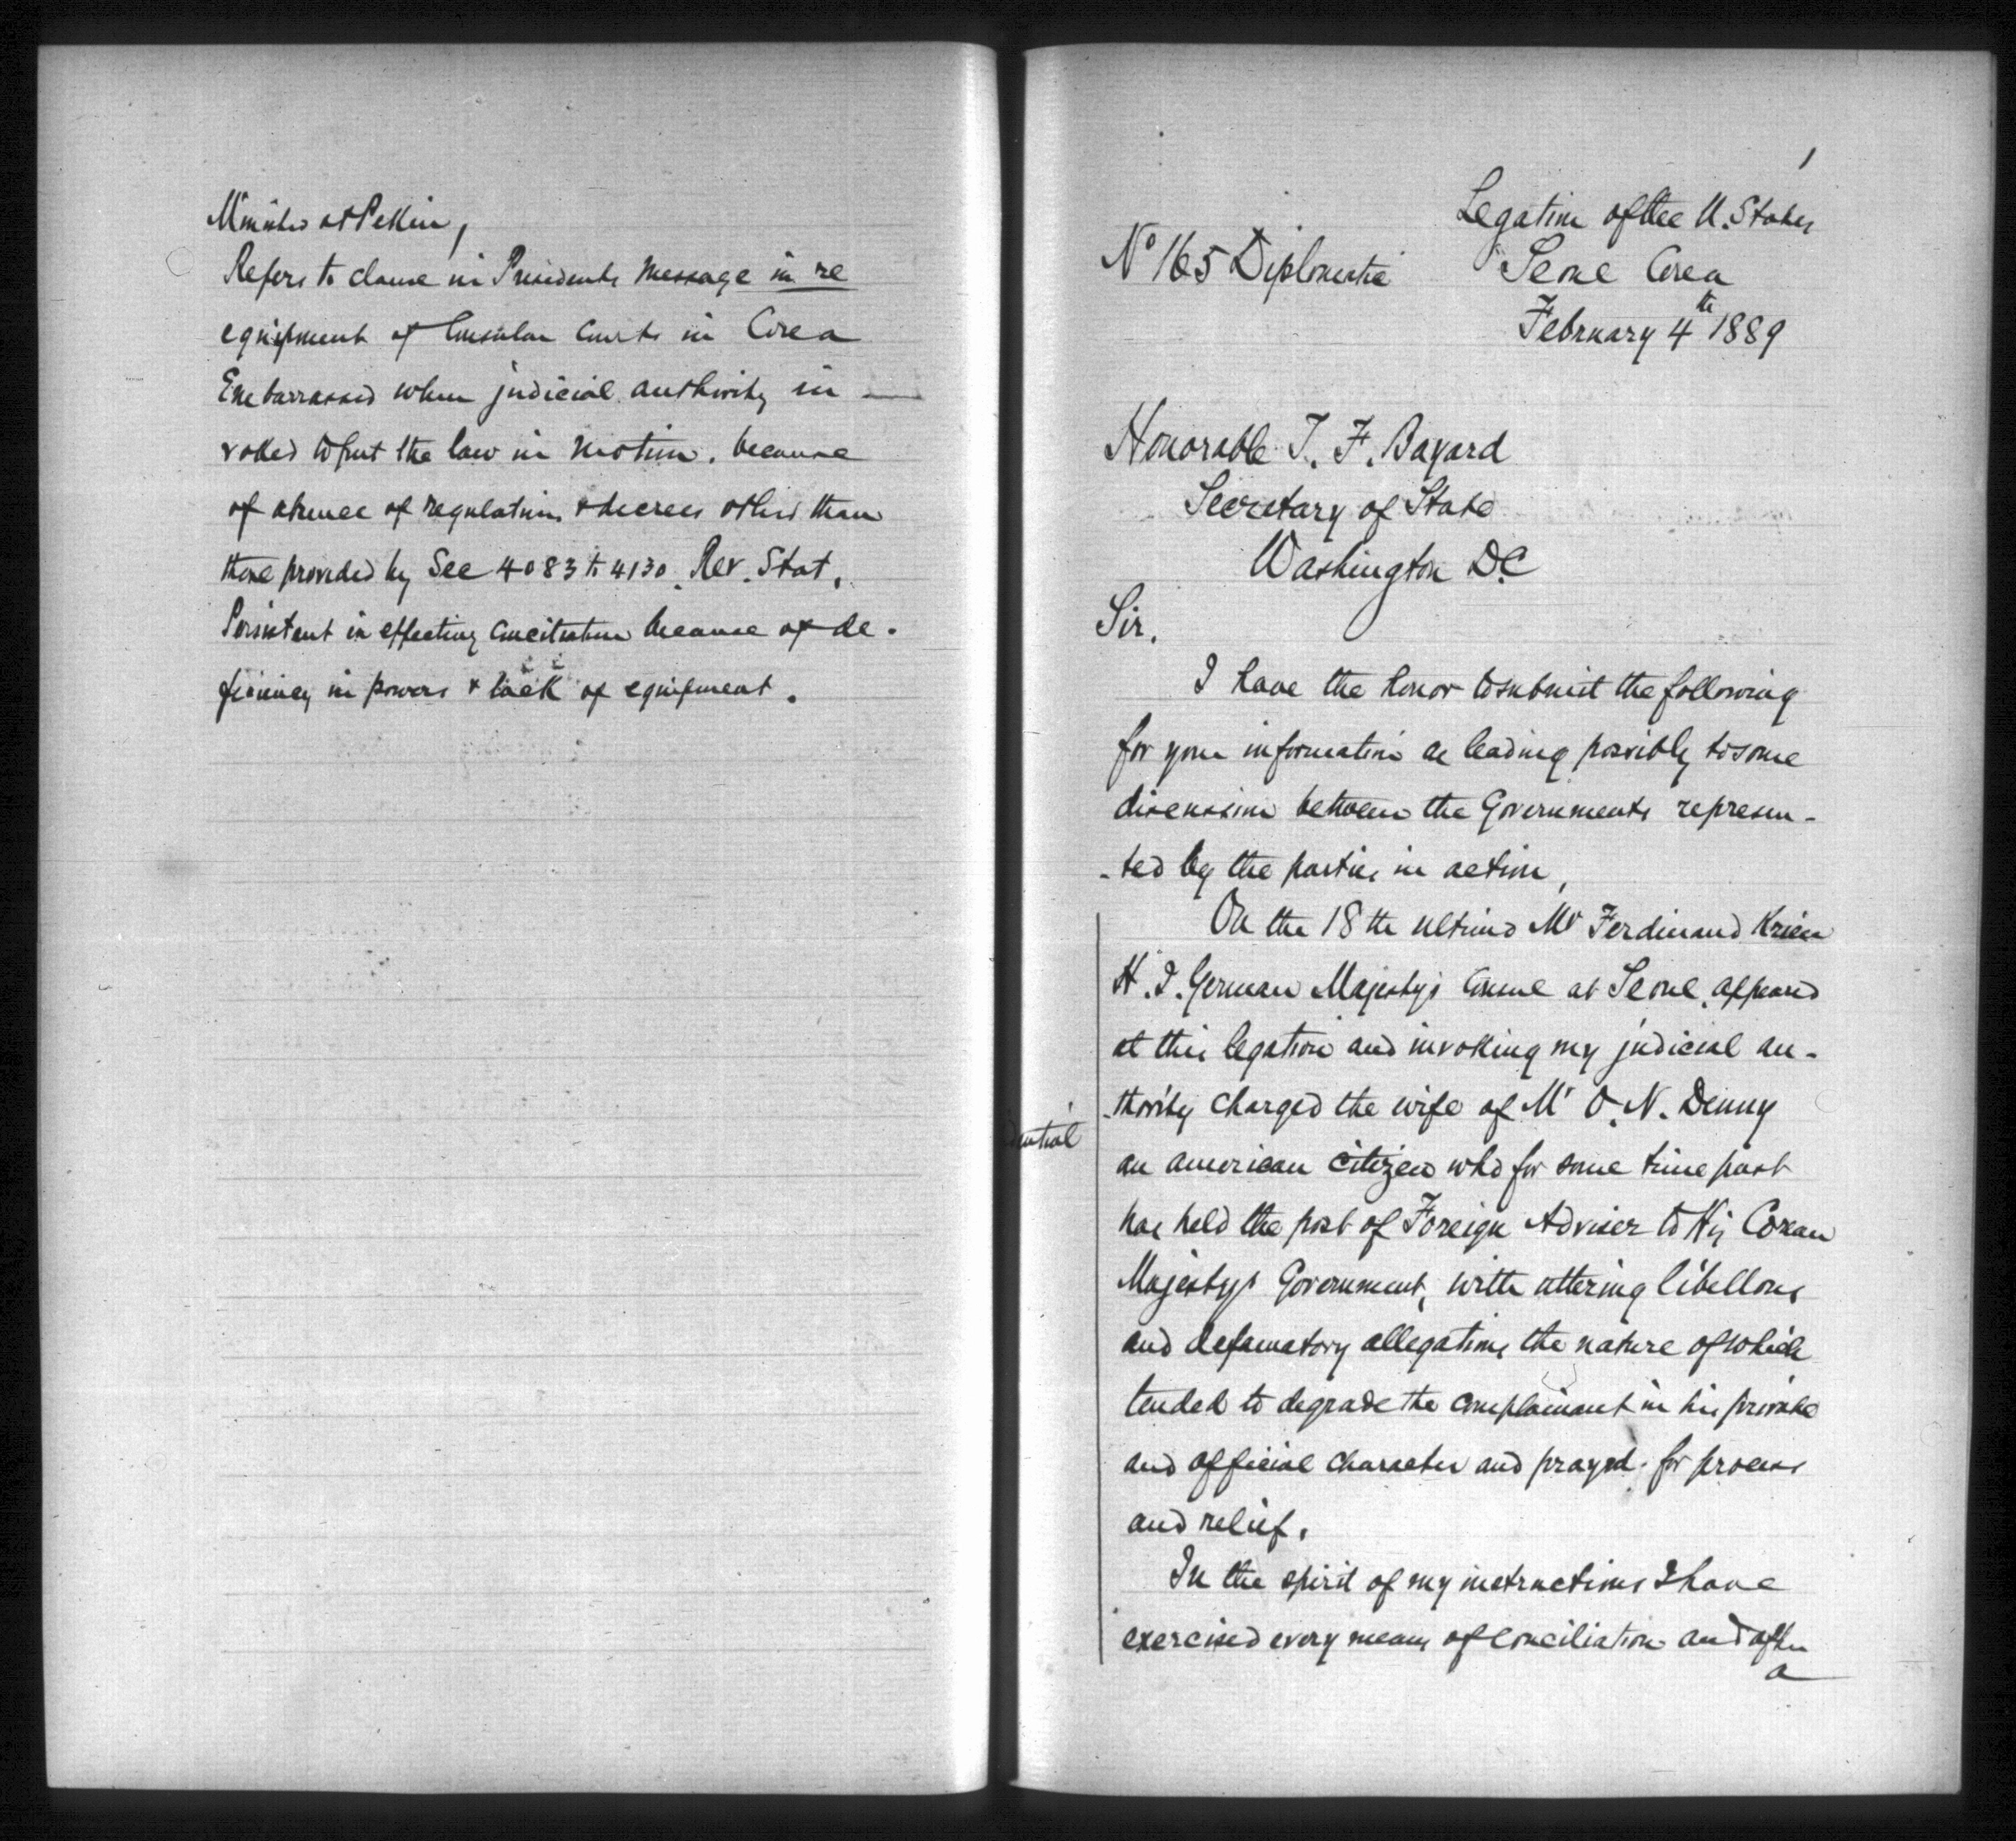 Minister at Pekin,
Refers to clause in Presidents message in re
equipment of Consular Courts in Corea
Embarrassed when judicial authority in —
voked to put the law in motion, because
of absence of regulations & decrees other than
those provided by Sec 4083 to 4130. Rev. Stat.
Persistent in effecting conciliation because of de-
ficiency in powers & lack of equipment.
1
Legation of the U. States
No 165 Diplomatic
Seoul Corea
February 4th 1889
Honorable T. F. Bayard
Secretary of State
Washington D.C
Sir.
I have the honor to submit the following
for your information as leading possibly to some
discussion between the Governments represen-
-ted by the parties in action,
On the 18th ultimo Mr Ferdinand Krien
H. I. German Majesty's Consul at Seoul, appeared
at this legation and invoking my judicial au-
-thority charged the wife of Mr O. N. Denny
dential
an american citizen who for some time past
has held the post of Foreign Adviser to His Corean
Majesty's Government, with uttering libellous
and defamatory allegations the nature of which
tended to degrade the complainant in his private
and official character and prayed for process
and relief.
In the spirit of my instructions I have
exercised every means of conciliation and after
a